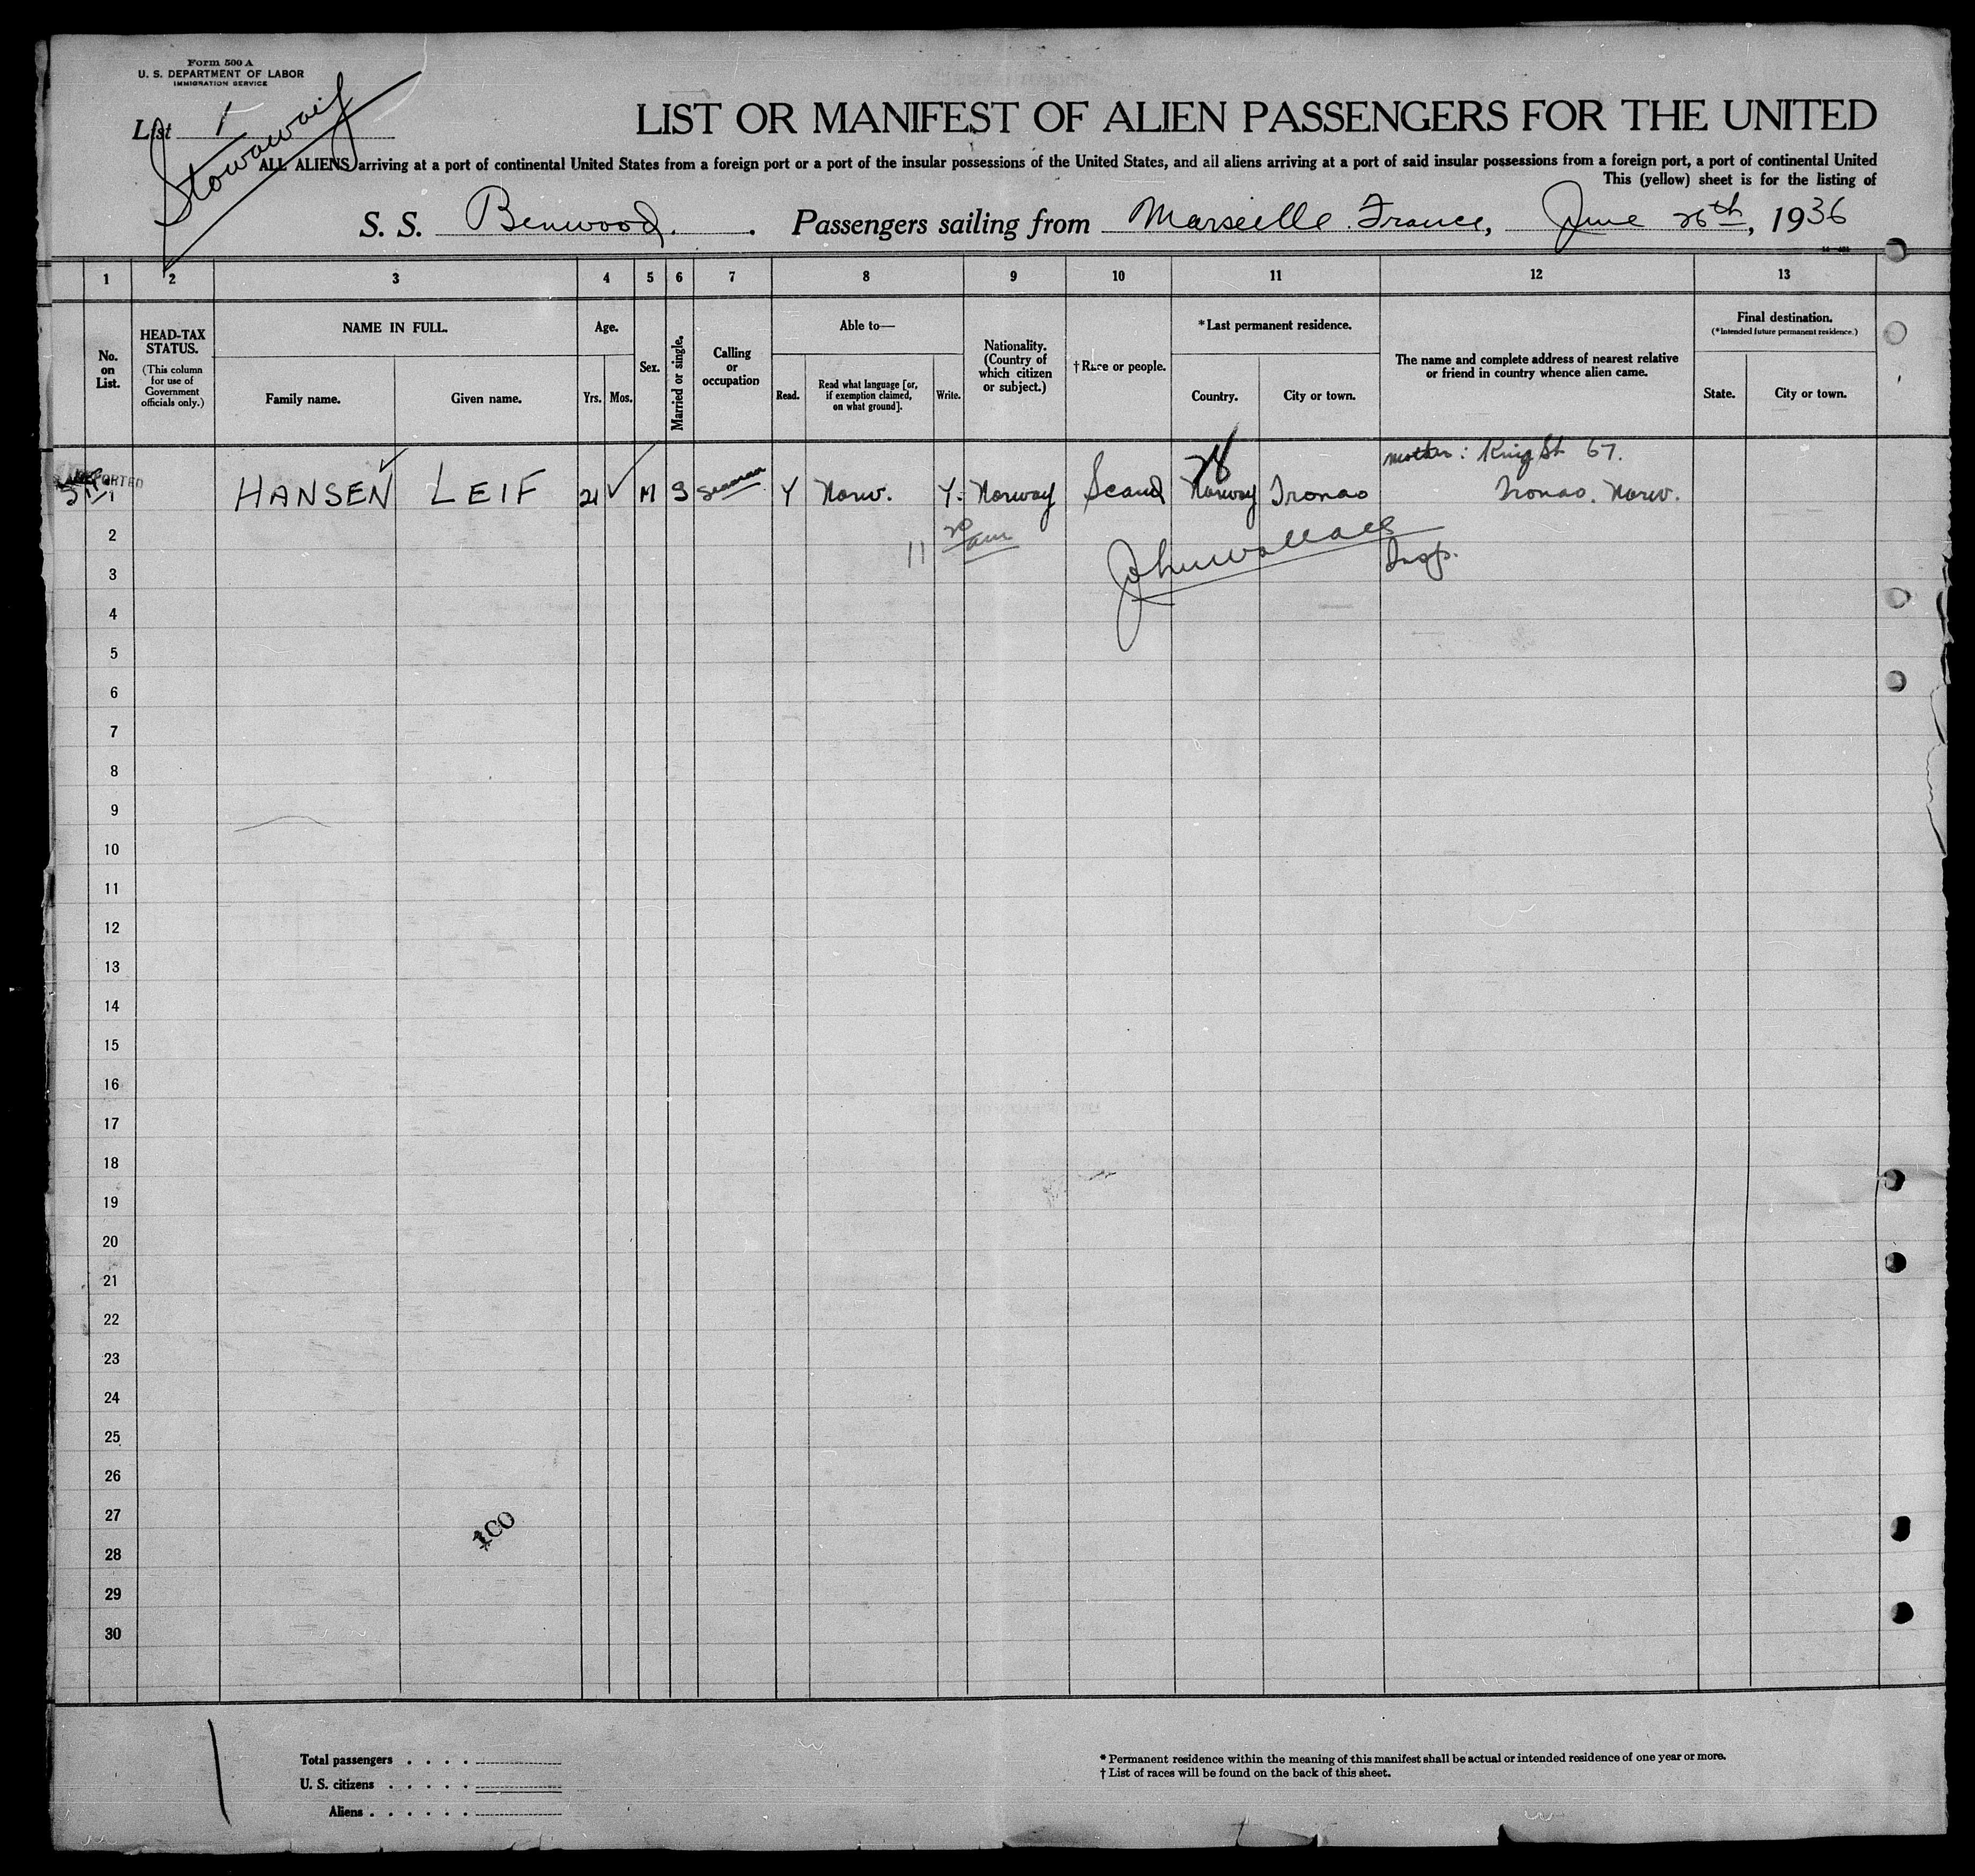 Form 500 A
U. S. DEPARTMENT OF LABOR
IMMIGRATION SERVICE
List 1
Stowaway
LIST OR MANIFEST OF ALIEN PASSENGERS FOR THE UNITED
ALL ALIENS arriving at a port of continental United States from a foreign port or a port of the insular possessions of the United States, and all aliens arriving at a port of said insular possessions from a foreign port, a port of continental United
This (yellow) sheet is for the listing of
S. S. Benwood. Passengers sailing from Marseille France, June 26th, 1936
1 2 3 4 5 6 7 8 9 10 11 12 13
No. on List.
HEAD-TAX STATUS.
(This column for use of Government officials only.)
NAME IN FULL.
Family name. Given name.
Age.
Yrs. Mos.
Sex.
Married or single.
Calling or occupation
Able to—
Read. Read what language [or, if exemption claimed, on what ground]. Write.
Nationality. (Country of which citizen or subject.)
†Race or people.
*Last permanent residence.
Country. City or town.
The name and complete address of nearest relative or friend in country whence alien came.
Final destination.
(*Intended future permanent residence.)
State. City or town.
mother: King St 67.
1 HANSEN LEIF 21 M S Seaman Y Norw. Y. Norway Scand Norway Tronao Tronao. Norw.
2 11 20 am
John Wallace Insp.
3
4
5
6
7
8
9
10
11
12
13
14
15
16
17
18
19
20
21
22
23
24
25
26
27
100
28
29
30
Total passengers . . . .
U. S. citizens . . . . .
Aliens . . . . . .
* Permanent residence within the meaning of this manifest shall be actual or intended residence of one year or more.
† List of races will be found on the back of this sheet.